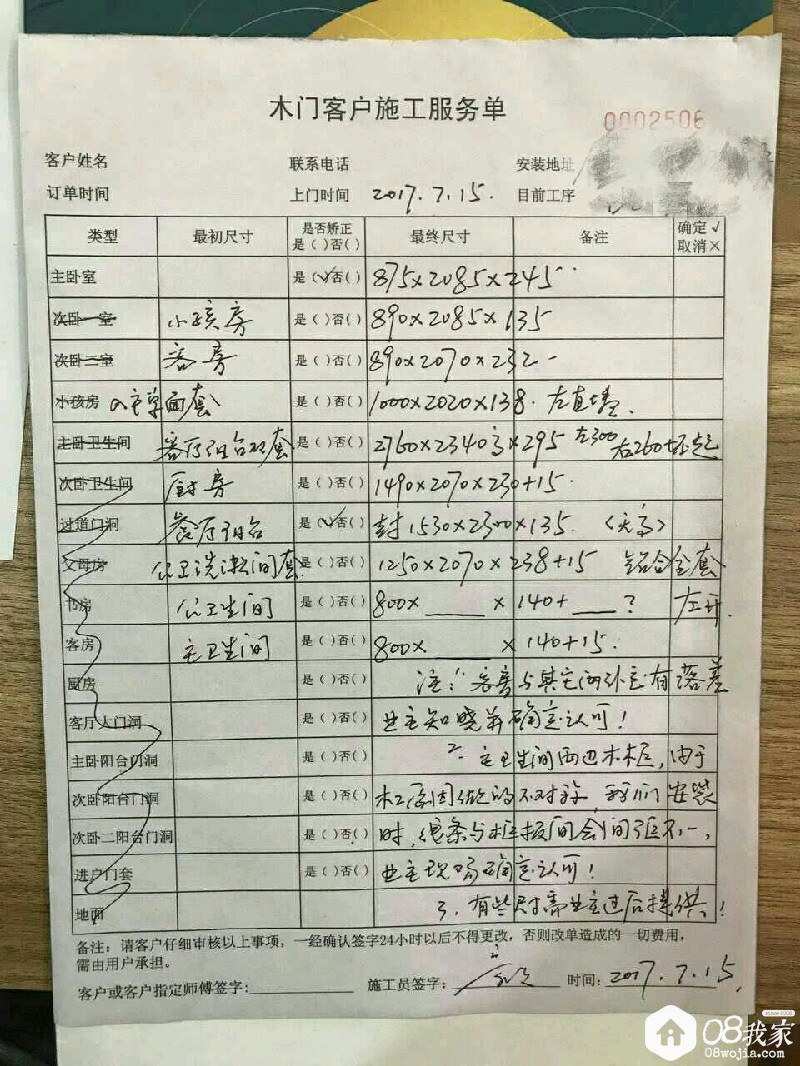 木门客户施工服务单
0002506
客户姓名 联系电话 安装地址
订单时间 上门时间 2017.7.15. 目前工序
类型 最初尺寸 是否矫正 是()否() 最终尺寸 备注 确定√ 取消×
主卧室 是(√)否() 875×2085×245
次卧一室 小孩房 是()否() 890×2085×135
次卧二室 客房 是()否() 890×2070×232
小孩房 单面套 是()否() 1000×2020×138. 左直
主卧卫生间 客厅阳台双套 是()否() 2760×2340高×295 左300 右260
次卧卫生间 厨房 是()否() 1490×2070×230+15.
过道门洞 餐厅阳台 是(√)否() 封1530×2300×135.
父母房 公卫洗漱间套 是()否() 1250×2070×238+15 铝合金套
书房 公卫生间 是()否() 800×____×140+____? 左开
客房 主卫生间 是()否() 800× ×140+15.
厨房 是()否() 注:1. 客房与其它两卧室有落差
客厅大门洞 是()否() 业主知晓并确定认可!
主卧阳台门洞 是()否() 2. 主卫生间两边木框,由于
次卧阳台门洞 是()否() 木工原因做的不对称,我们安装
次卧二阳台门洞 是()否() 时,线条与框板间会间距不一,
进户门套 是()否() 业主现场确定认可!
地面 3、有些尺寸需业主过后提供!
备注:请客户仔细审核以上事项,一经确认签字24小时以后不得更改,否则改单造成的一切费用,
需由用户承担。
客户或客户指定师傅签字: 施工员签字: 时间:2017.7.15.
08我家
08wojia.com